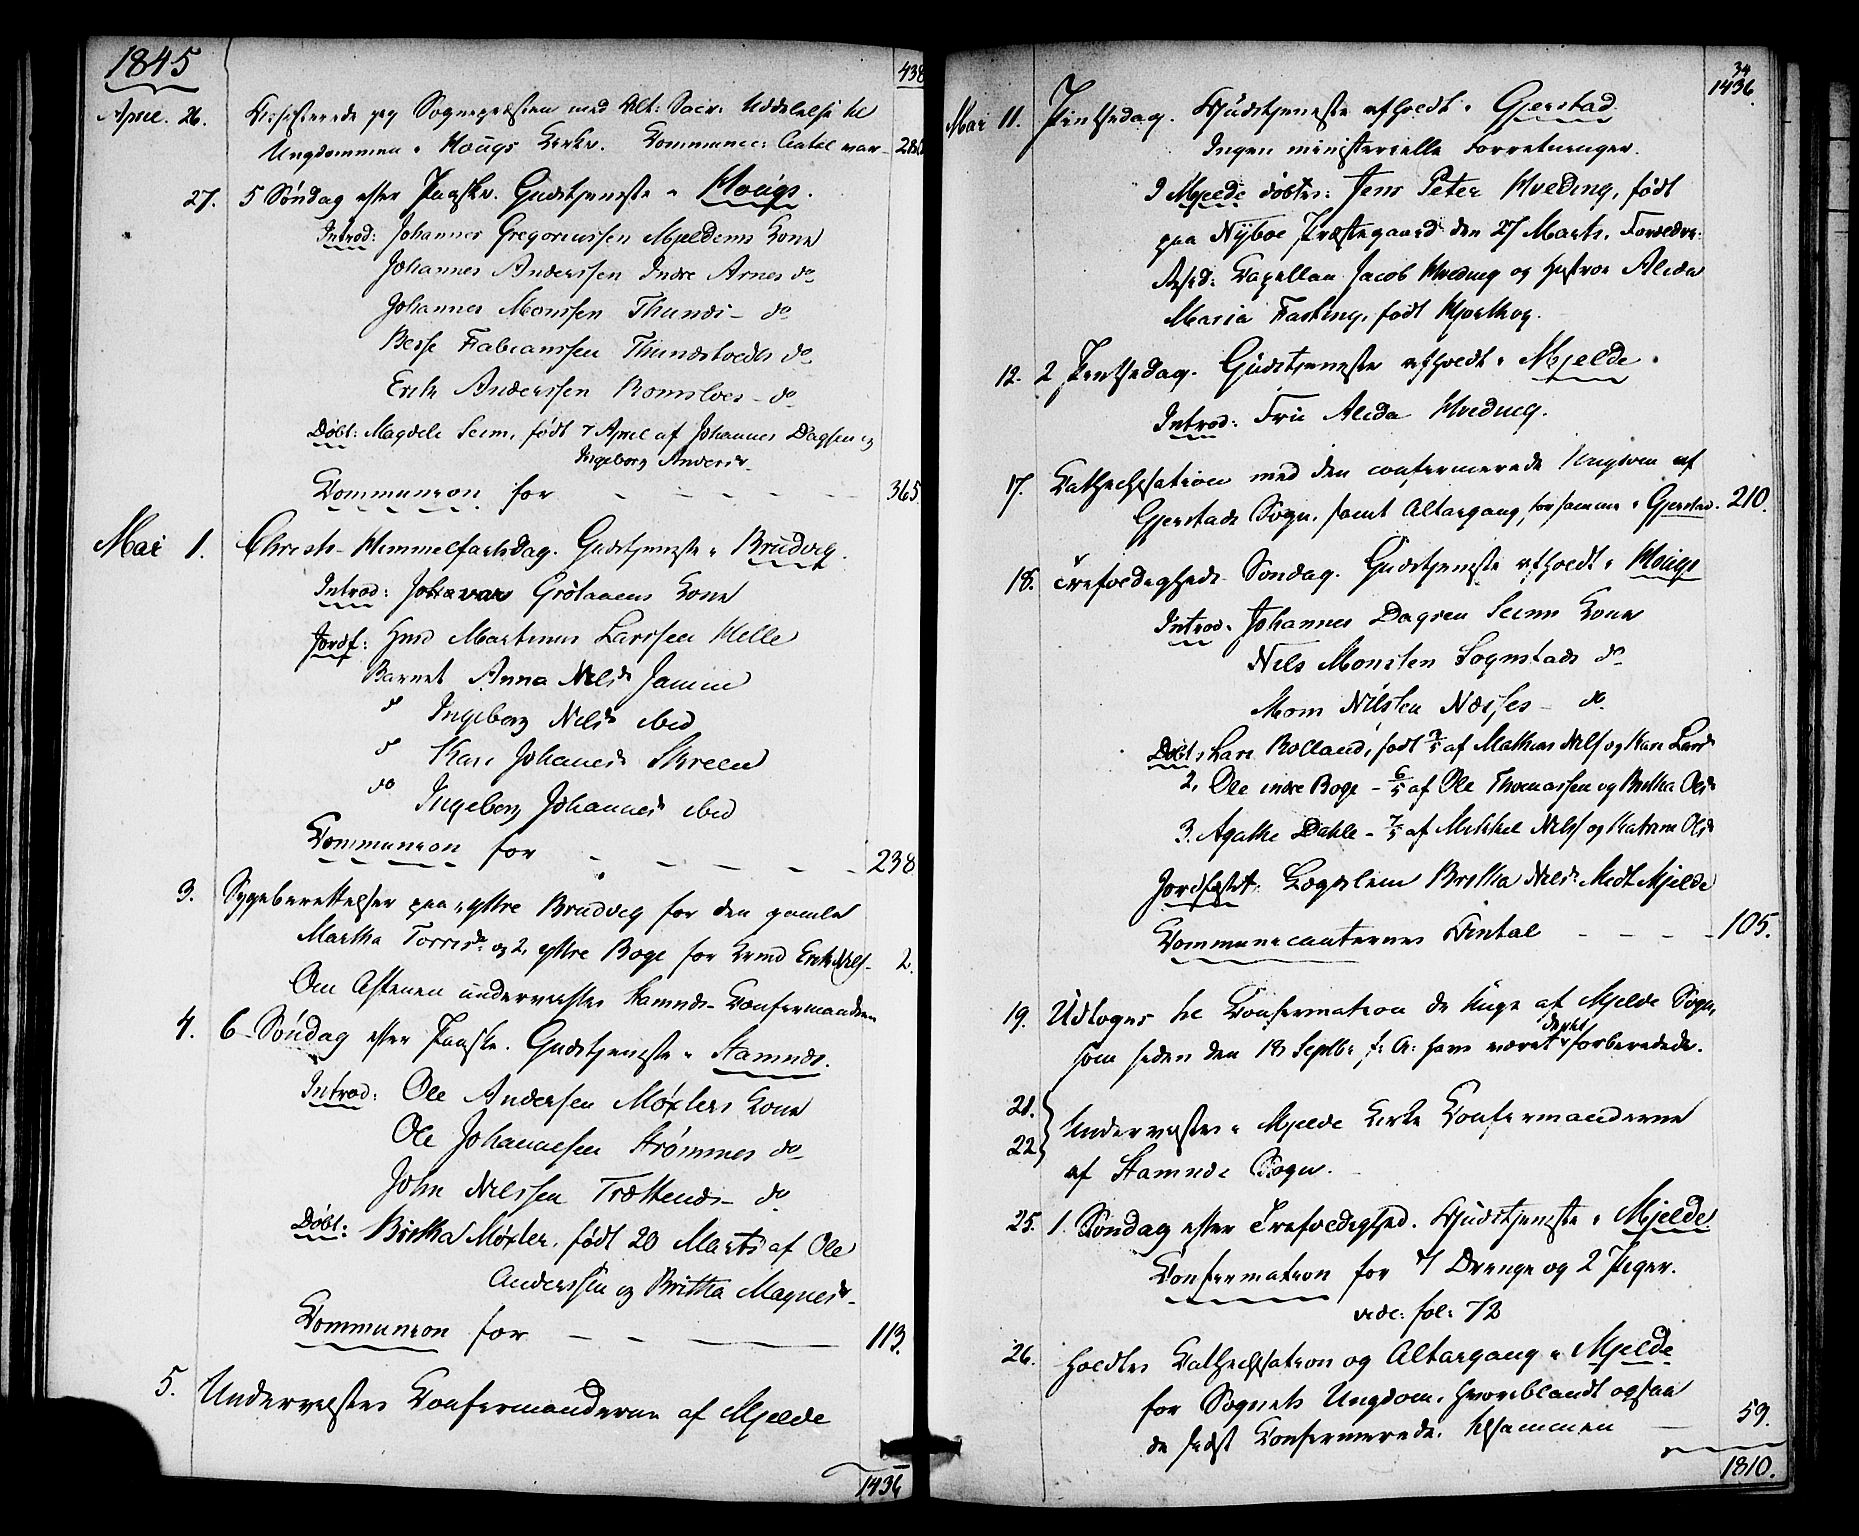 1845
438
April. 26. Assisterede jeg Sognepræsten med Alt: Sacr: Uddelelse til
Ungdommen i Hougs Kirke. Communic: Antal var 280
27. 5 Søndag efter Paaske. Gudstjeneste i Hougs.
Introd: Johannes Gregoriussen Mjeldems Kone
Johannes Anderssen Indre Arnes do
Johannes Monssen Thunds - do
Besse Fabianssen Thunestvedts do
Erik Anderssen Romsloes - do
Døbt: Magdeli Seim, født 7 April af Johannes Dagsen og
Ingeborg Andersd.
Communion for - - - - - 365
Mai 1. Christi Himmelfartsdag. Gudstjeneste i Brudvig.
Introd: Grølaaens Kone
Jordf: Martinus Larssen Helle
Barnet Anna Nelsd
d Ingeborg Nelsd ibid
d Kari Johannesd
do Ingeborg Johannesd ibid
Communion for - - - - - 238
3. Sygeberettelser paa 1, yttre Brudvig for den gamle
Martha Torrisd. og 2, yttre Boge for Erik Nels. 2.
Om Aftenen underviistes Stamnes Confirmander
4. 6 Søndag efter Paaske. Gudstjeneste i Stamnes.
Introd: Ole Andersen Møxters Kone
Ole Johannesen Strømmes do
John Nelssen Trættenes - do
Døbt: Britha Møxter, født 20 Marts af Ole
Anderssen og Britha Magnesd.
Communion for - - - 113.
5. Underviistes Confirmanderne af Mjelde
1436
34
1436.
Mai 11. Pintsedag. Gudstjeneste afholdt i Gjerstad.
Ingen ministerielle Forretninger.
I Mjelde døbtes: Jens Peter Hveding, født
paa Nyboe Præstegaard den 27 Marts. Forældre:
Resid: Capellan Jacob Hveding og Hustroe Alida
Maria Fasting, født
12. 2 Pintsedag. Gudstjeneste afholdt i Mjelde.
Introd: Fru Alida Hveding.
17. Cathechisation med den confirmerede Ungdom af
Gjerstads Sogn, samt Altergang, for samme i Gjerstad. 210.
18. Trefoldigheds Søndag. Gudstjeneste afholdt i Hougs
Introd. Johannes Dagsen Seims Kone
Nils Monsen Sognstads do
Mons Nilsen Næsses - do
Døbt: Lars Rolland, født af Mathias Nels og Kari Larsd
2, Ole indre Boge - 6/5 af Ole Thomassen og Britha Olsd
3. Agathe Dahle - 7/5 af Mikkel Nels og Katrine Olsd
Jordfæstet: Lægdslem Britha Nelsd Midt Mjelde
Communicanternes Antal - - - - 105.
19. Udtoges til Confirmation de Unge af Mjelde Sogn,
som siden den 18 Septb: f: A: have været dertil forberedede.
21.
22. Underviistes i Mjelde Kirke Confirmanderne
af Stamnes Sogn.
25. 1. Søndag efter Trefoldighed. Gudstjeneste i Mjelde
Confirmation for 7 Drenge og 2 Piger.
vide: fol: 72
26. Holdtes Cathechisation og Altergang i Mjelde
for Sognets Ungdom, hvoriblandt ogsaa
de sidst Confirmerede. tilsammen - 59.
1810.